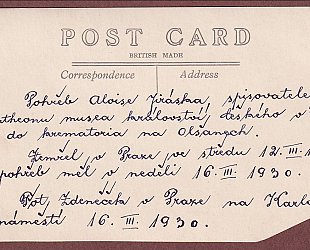 POST CARD
BRITISH MADE
Correspondence Address
Pohřeb Aloise Jiráska, spisovatele
theonu musea království českého v
do krematoria na Olšanech.
Zemřel v Praze ve středu 12. III.
pohřeb měl v neděli 16. III. 1930.
Fot. Zdeneček v Praze na Karlo
náměstí 16. III. 1930.